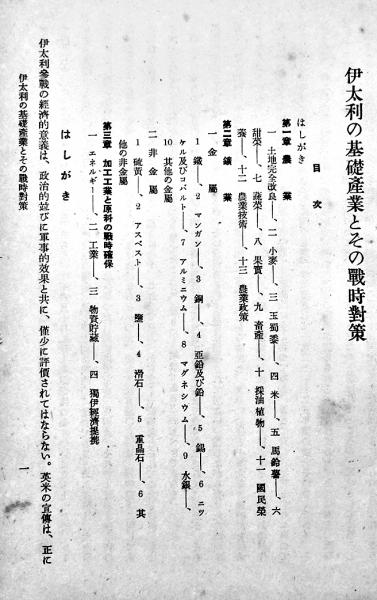 伊太利の基礎產業とその戰時對策
目次
はしがき
第一章 農業
一 土地完全改良――、二 小麥――、三 玉蜀黍――、四 米――、五 馬鈴薯――、六
甜菜――、七 蔬菜――、八 果實――、九 畜產――、十 採油植物――、十一 國民榮
養――、十二 農業技術――、十三 農業政策
第二章 鑛業
一 金屬
1 鐵――、2 マンガン――、3 銅――、4 亞鉛及び鉛――、5 錫――、6 ニッ
ケル及びコバルト――、7 アルミニウム――、8 マグネシウム――、9 水銀――、
10 其他の金屬
二 非金屬
1 硫黃――、2 アスベスト――、3 鹽――、4 滑石――、5 重晶石――、6 其
他の非金屬
第三章 加工工業と原料の戰時確保
一 エネルギー――、二 工業――、三 物資貯藏――、四 獨伊經濟提携
はしがき
伊太利參戰の經濟的意義は、政治的並びに軍事的效果と共に、僅少に評價されてはならない。英米の宣傳は、正に
伊太利の基礎產業とその戰時對策
一